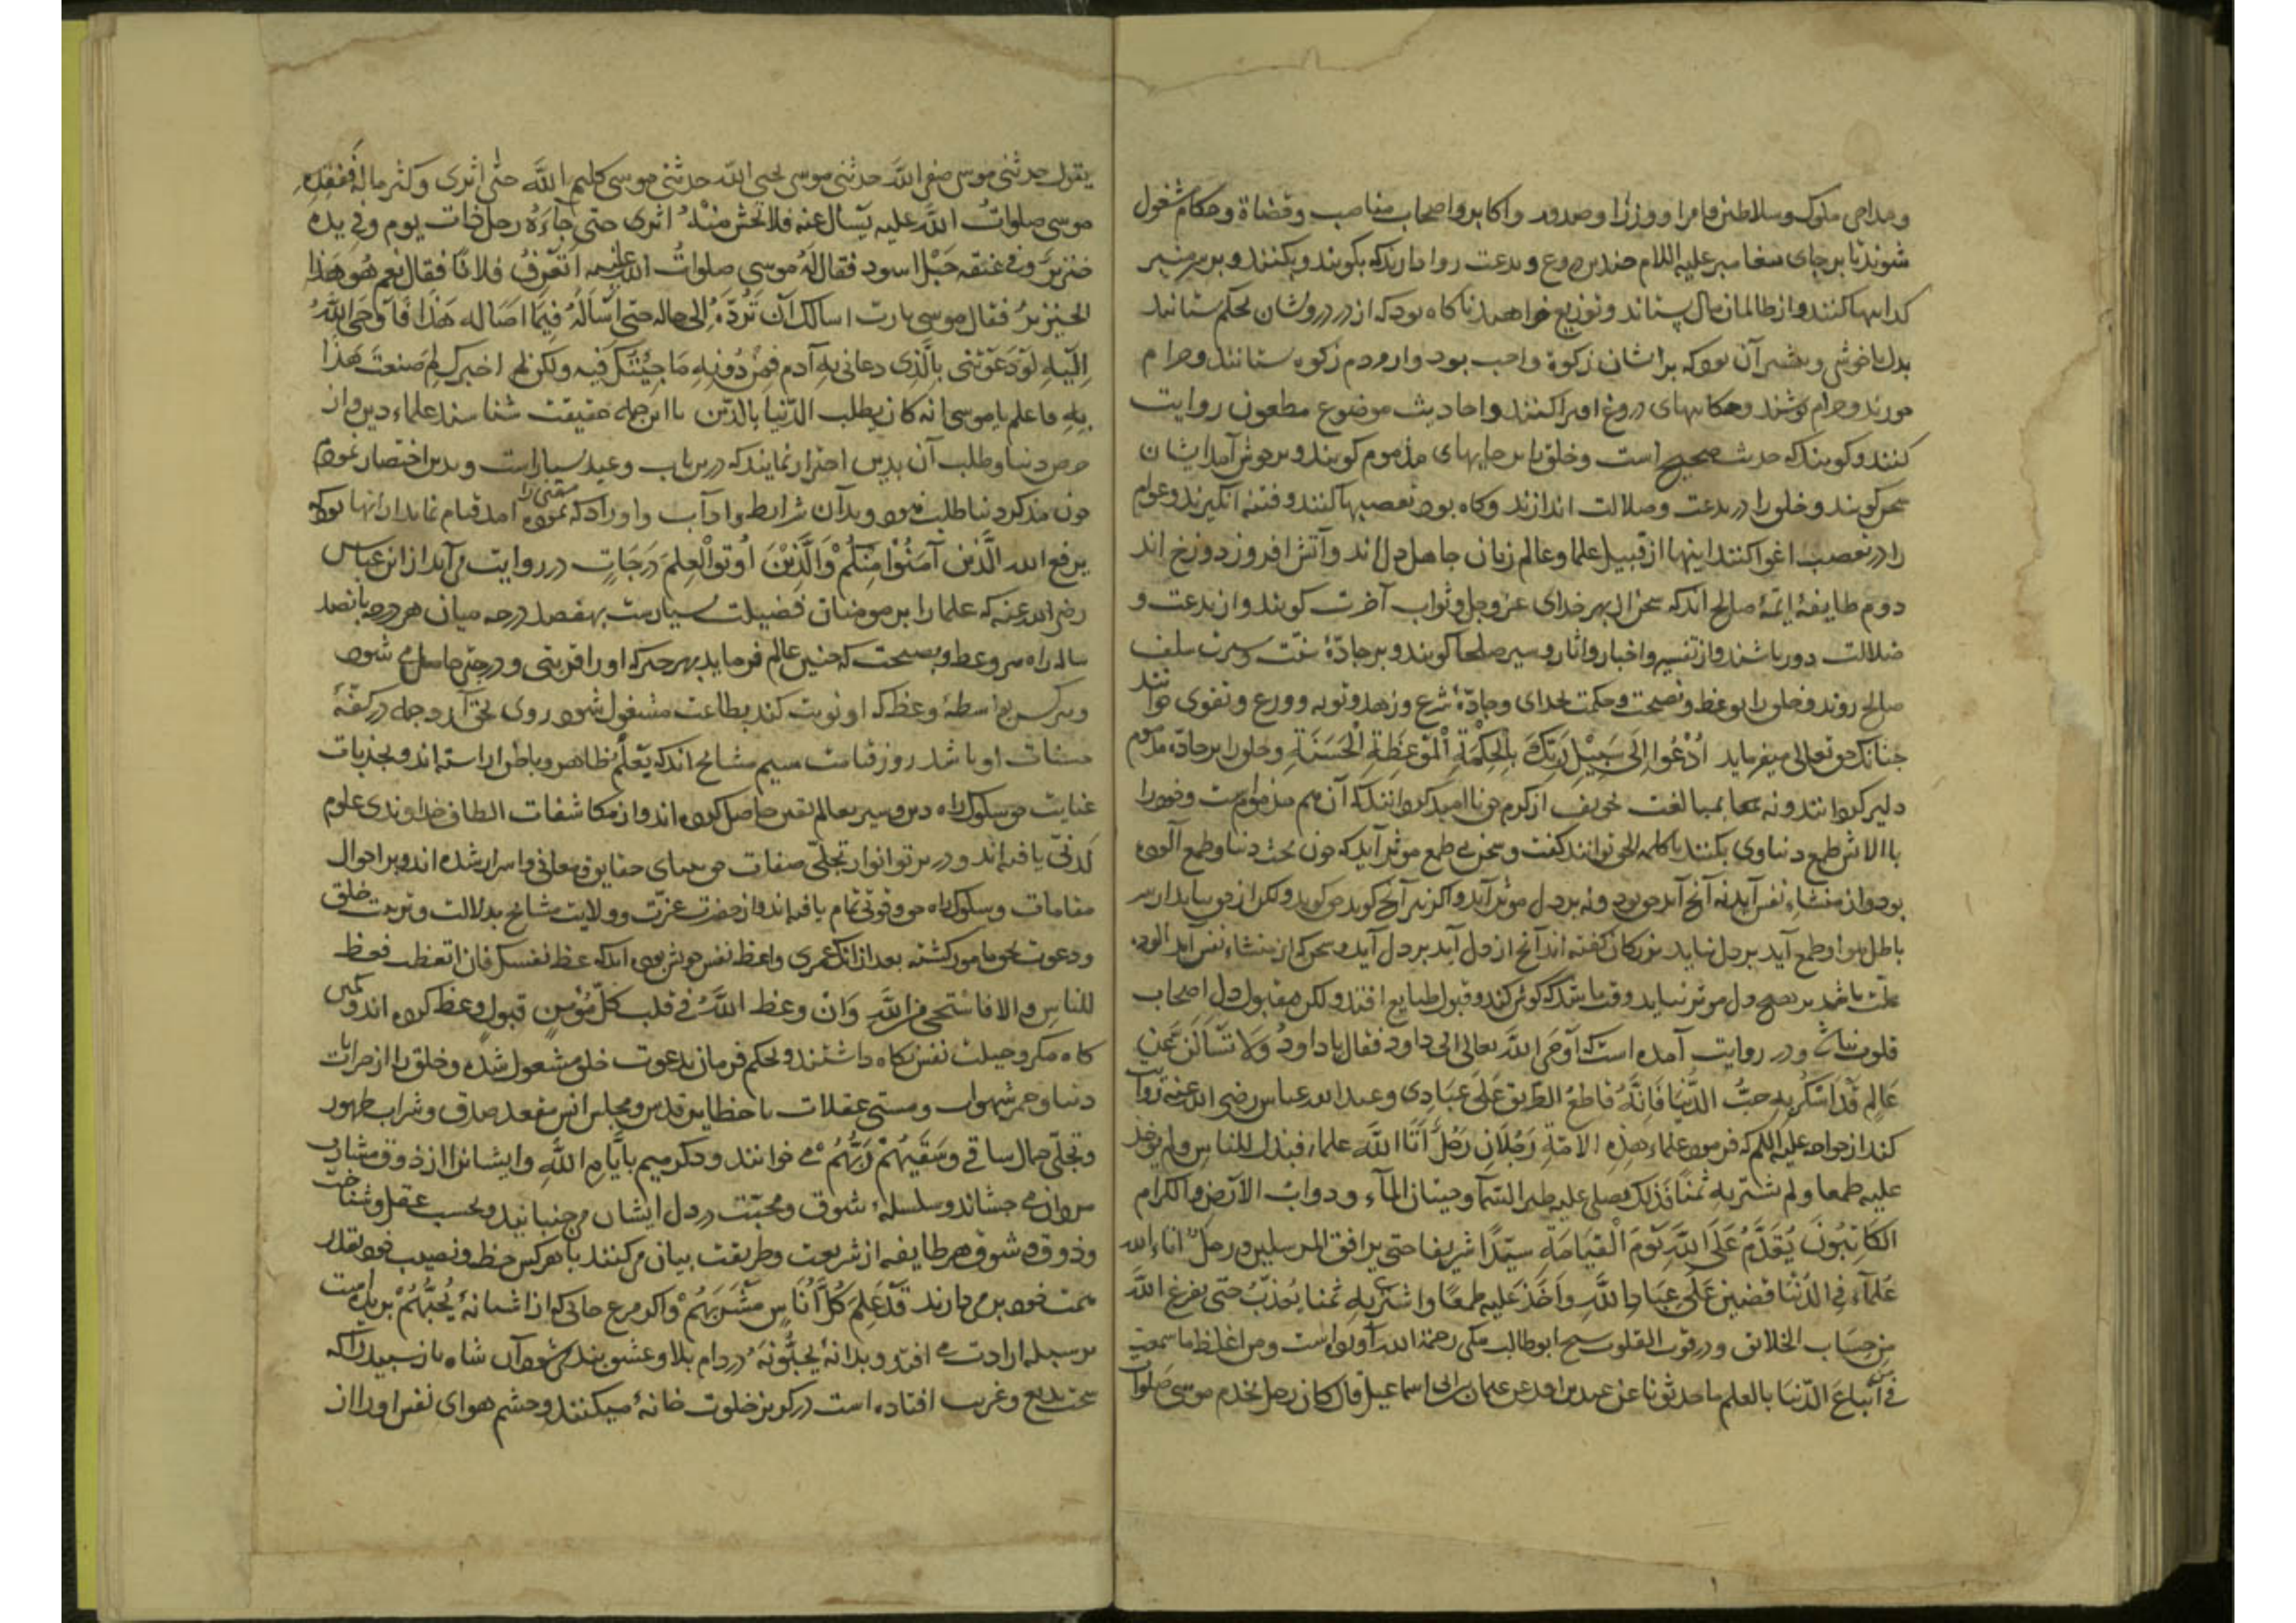 و مداحی ملوک و سلاطین و امرا و وزرا و صدور و اکابر و اصحاب مناصب و قضاة و حکام مشغول
شوند تا بر جای پیغامبر علیه السلام چندین دروغ و بدعت روا دارند که بکویند و بکنند و بر سر منبر
کدایها کنند و از ظالمان مال بستاند و توزیع خواهند تا کاه بود که از درویشان بحکم ستانند
بدل ناخوش و بیشتر آن بود که بر ایشان زکوة واجب بود و از مردم زکوه ستانند و حرام
خورند و حرام پوشند و حکایتهای دروغ افترا کنند و احادیث موضوع مطعون روایت
کنند و کویند که حدیث صحیح است و خلق را بر جایهای مذموم کویند و بر خوش آمد ایشان
سخن کویند و خلق را در بدعت و ضلالت اندازند و کاه بود تعصبها کنند و فتنه انگیزند و عوام
را در تعصب اغوا کنند اینها از قبیل علما و عالم زبان جاهل دل اند و آتش افروز دوزخ اند
دوم طایفهٔ ائمهٔ صالح اند که سخن از بهر خدای عز و جل و ثواب آخرت کویند و از بدعت و
ضلالت دور باشند و از تفسیر و اخبار و آثار و سیر صلحا کویند و بر جادّهٔ سنّت و سیرت سلف
صالح روند و خلق را بوعظ و نصیحت و حکمت بخدای و جادّهٔ شرع و زهد و توبه و ورع و تقوی خوانند
چنانکه حق تعالی میفرماید اُدْعُوا اِلَی سَبِیْلِ رَبِّكَ بِالْحِکْمَةِ الْمَوْعِظَةِ الْحَسَنَةِ و خلق را بر جادّه
دلیر کردانند و نه بمبالغت تخویف از کرم حق ناامید کردانند که آن هم مذموم است و خود را
بالایش طمع دنیاوی نکنند تا کلمه الحق توانند کفت و سخن بی طمع موثر آید که چون بحث دنیا و طمع آلوده
بود و از منشاء نفس آید نه آنچ آید حق بود و نه بر دل موثر آید و اکر نیز آنچ کوید حق کوید ولکن از
باطل هوا و طمع آید بر دل نیاید بزرکان کفته اند آنچ از دل آید بر دل آید و سخن که از منشاء نفس آید آلوده
علت باشد بر هیچ دل موثر نیاید وقت باشد که کوش کند و قبول طبایع افتد ولکن مقبول دل اصحاب
قلوب نباشد و در روایت آمده است که اَوْحَی اللهُ تعالی الی داود فقال یا داودُ وَلَا تَسْاَلَنَّ عَنِّی
عَالِمٍ قَدْ اَسْکَرَهُ حُبُّ الدُّنْیَا فَاِنَّهُ قَاطِعُ الطَّرِیقِ عَلَی عِبَادِی و عبدالله عباس رضی الله عنه روایت
کند از خواجه علیه السلم که فرمود علماء هذِهِ الاُمّةِ رَجُلَانِ رَجُلٌ آتَاهُ اللهُ علما فبذله للناسِ ولم یاخذ
علیه طمعا ولم یشتر بِه ثَمَنًا فذلک یصلی علیه طیر السّمآ و حیتان المآء و دوابّ الارض و الکرام
الکَاتِبُونَ یُقَدَّمُ عَلَی اللهِ یَوْمَ الْقِیَامَةِ سَیّدًا شریفا حتی یرافق المرسلین و رجلٌ اتاه الله
عِلْمآءً فی الدُّنْیَا فَضَنَّ عَلَی عِبَادِ اللهِ وَاَخَذَ عَلَیه طمعًا واشتری به ثمنا یُعَذَّبُ حَتّی یفرغ اللهُ
مِن حِسَابِ الخلائق و در قوت القلوب شیخ ابو طالب مکی رحمة الله آورده است و من اغلظ ما سمعت
فی من اَتباعَ الدّنیَا بالعلم ما حدثونا عن عبید بن واقد عن عثمان بن ابی اسماعیل قال کان رجل یخدم موسی صلوات
یقول حدثنی موسی صفی اللهَ حدثنی موسی نجی الله حدثنی موسی کلیم اللهَ حتّی اثری و کثر ماله فَفقده
موسی صلواتُ اللهَ علیه یسأل عنه فلا یحس منه اثری حتی جاءَهُ رجل ذات یوم وفی یده
خنزیر وفی عنقه حَبْل اسود فقال لهُ موسی صلواتُ الله علیه اتَعْرِفُ فلانًا فقال نعم هُو هَذا
الخنزیر فقال موسی یا رب اسالك اَن تَرُدَّهُ اِلی حاله حتی اَسْاَلَهُ فِیمَا اصَابَه هَذَا فَاَوْحَی اللهُ
اِلَیهِ لَوْ دَعَوْتَنی بالَّذِی دعانی بِه آدم فَمَنْ دُونَهِ مَا اَجَبْتُكَ فیه ولکن اخبرك لِمَ صَنعتُ هَذا
بِهِ فاعلم یا موسی انه کان یطلب الدّنیا بالدّین تا ازین جمله حقیقت شناسند علماء دین و از
حرص دنیا و طلب آن بدین احتراز نمایند که درین باب وعید بسیار است و بدین اختصار نموده
چون مذکر دنیا طلب نبود و بدان شرایط و آداب و اوراد که نموده آمد قیام نماید از آنها بود که
یرفع الله الَّذین آمَنُوا مِنْکُمْ وَالَّذِیْنَ اُوتُوا الْعِلْمَ دَرَجَاتٍ در روایت می آید از ابن عباس
رضی الله عنه که علما را بر مومنان فضیلت بسیارست بهفصد درجه میان هر درجه پانصد
ساله راه بهر وعظ و نصیحت که چنین عالم فرماید بهر حرکه او را قربتی و درجتی حاصل می شود
و هر کس بواسطهٔ وعظ که او توبت کند بطاعت مشغول شود روی بحق آرد جمله در کفّهٔ
حسنات او باشد روز قیامت سیم مشایخ اند که بعلم ظاهر و باطن آراسته اند و بجذبات
عنایت حق سلوک راه دین و سیر بعالم یقین حاصل کرده اند و از مکاشفات الطاف خداوندی علوم
لَدنّی یافته اند و در پرتو انوار تجلّی صفات حق بینای حقایق و معانی و اسرار شده اند و بر احوال
مقامات و سلوک راه حق وقوفی تمام یافته اند و از حضرت عزّت و ولایت مشایخ بدلالت و تربیت خلق
و دعوت بحق مامور کشته بعد از آنک عمری واعظ نفس خویش بوده اند که عظ نفسك فان اتعظت فعظ
للناسِ والا فاستَحی من اللهِ وَانْ وعظ اللهُ فی قلب کلّ مُؤْمِنٍ قبول وعظ کرده اند و کمین
کاه مکر و حیلت نفس نکاه داشتند و بحکم فرمان بدعوت خلق مشغول شده و خلق را از خرابات
دنیا و خمر شهوات و مستی غفلات با حظایر قدس و مجلس انس مقعد صدق و شراب طهور
و تجلّی جمال ساقی وَسَقَیهُمْ رَبُّهُمْ می خوانند و ذکرهم بِاَیَّامِ اللهِ و ایشانرا از ذوق مشارب
مردان می چشاند و سلسلهٔ شوق و محبّت در دل ایشان می جنبانند و بحسب عقل و شناخت
و ذوق و شوق هر طایفه از شریعت و طریقت بیان می کنند تا هر کس حظ و نصیب خود بقدر
همت خود بر می دارند قَدْ عَلِمَ کُلُّ اُنَاسٍ مَشْرَبَهُمْ و اکر مرغ جانی که از اشیانهٔ یُحِبُّهُمْ پریده است
بر سلسله ارادت می افتد و بدانهٔ یُحِبُّونَهُ در دام بلا و عشق بند می شود آن شاه باز سپید را که
سخت بدیع و غریب افتاده است در کوین خلوت خانهٔ میکنند و چشم هوای نفس او را از